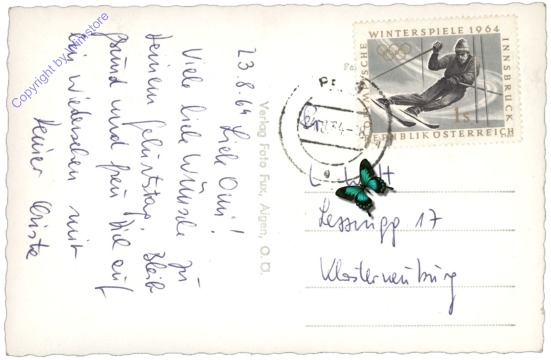 23.8.64
Liebe Omi!
Viele liebe Wünsche zu
Deinem Geburtstag. Bleib
gesund und freu Dich auf
ein Wiedersehen mit
Deiner Christa
Verlag Foto Fux, Aigen, O. Ö.
OLYMPISCHE WINTERSPIELE 1964 INNSBRUCK
1 S
REPUBLIK ÖSTERREICH
17
Klosterneuburg
Copyright by Wimstore